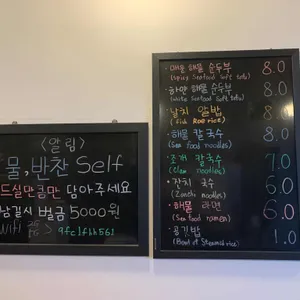 <알림>
물, 반찬 Self
드실만큼만 담아주세요
남길시 벌금 5000원
WiFi 비번 > 9fc1f1kk561
매운 해물 순두부 8.0
(Spicy Seafood Soft tofu)
하얀 해물 순두부 8.0
(White Seafood Soft tofu)
날치 알밥 8.0
(fish Roe rice)
해물 칼국수 8.0
(Sea food noodles)
조개 칼국수 7.0
(Clam noodles)
잔치 국수 6.0
(Zanchi noodles)
해물 라면 6.0
(Sea food ramen)
공기밥 1.0
(Bowl of Steamed rice)